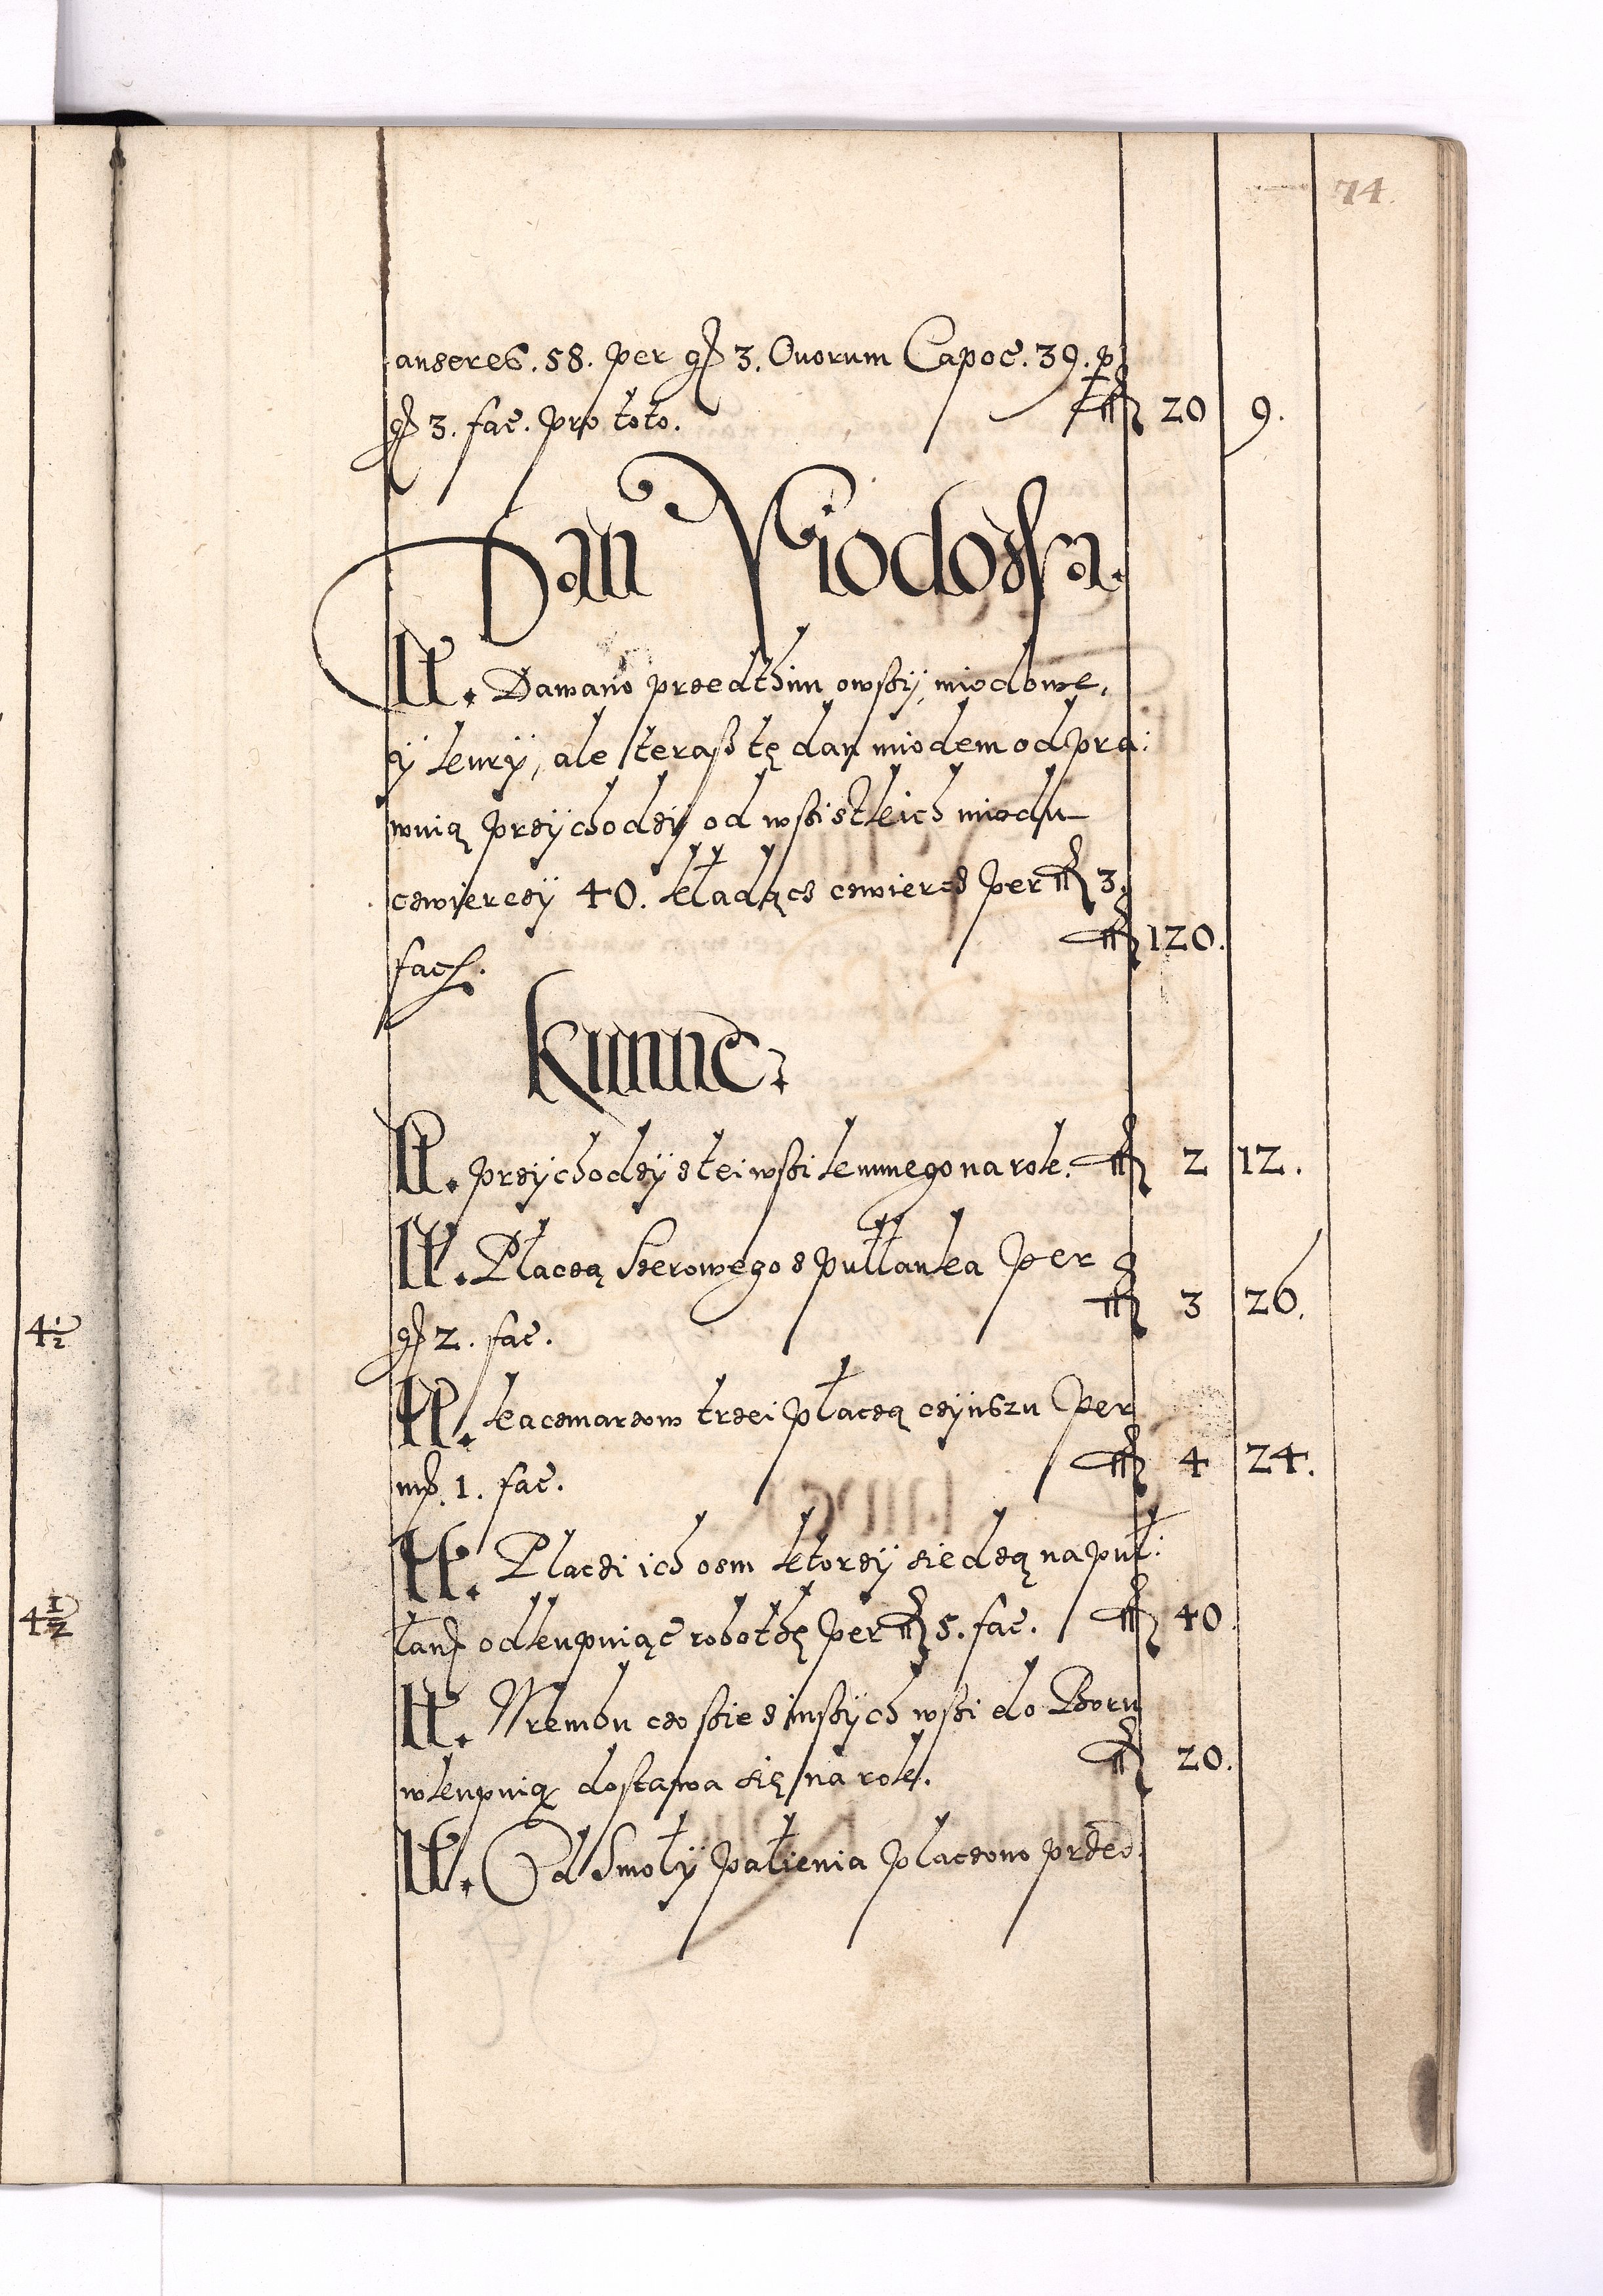 74.
anseres. 58. per gr 3. Ouorum Capoc. 39. p
gr 3. fac. pro toto. fl 20 9.
Dan Miodowa.
It. Dawano przedthim owszy, miodowe,
y kury, ale teraß tę dan miodem odpra:
wuią przychodzy od wßistkich miodu
czwierczy 40. kładącz czwiercz per fl 3.
fac. fl 120.
Kunne.
It. przychodzy stei wßi kunnego na rok. fl 2 12.
It. Płaczą Szerowego s pułłanka per
gr 2. fac. fl 3 26.
It. kaczmarzow trzei płaczą czynszu per
mr. 1. fac. fl 4 24.
It. Placzi ich osm ktorzy siedzą na puł:
łany odkupuiąc robothę per fl 5. fac. fl 40.
It. Wrembu czo ßie s inßych wßi do Boru
wkupuią dostawa się na rok. fl 20.
It. Od Smoły palienia placzono przed
4 1/2
4 1/2